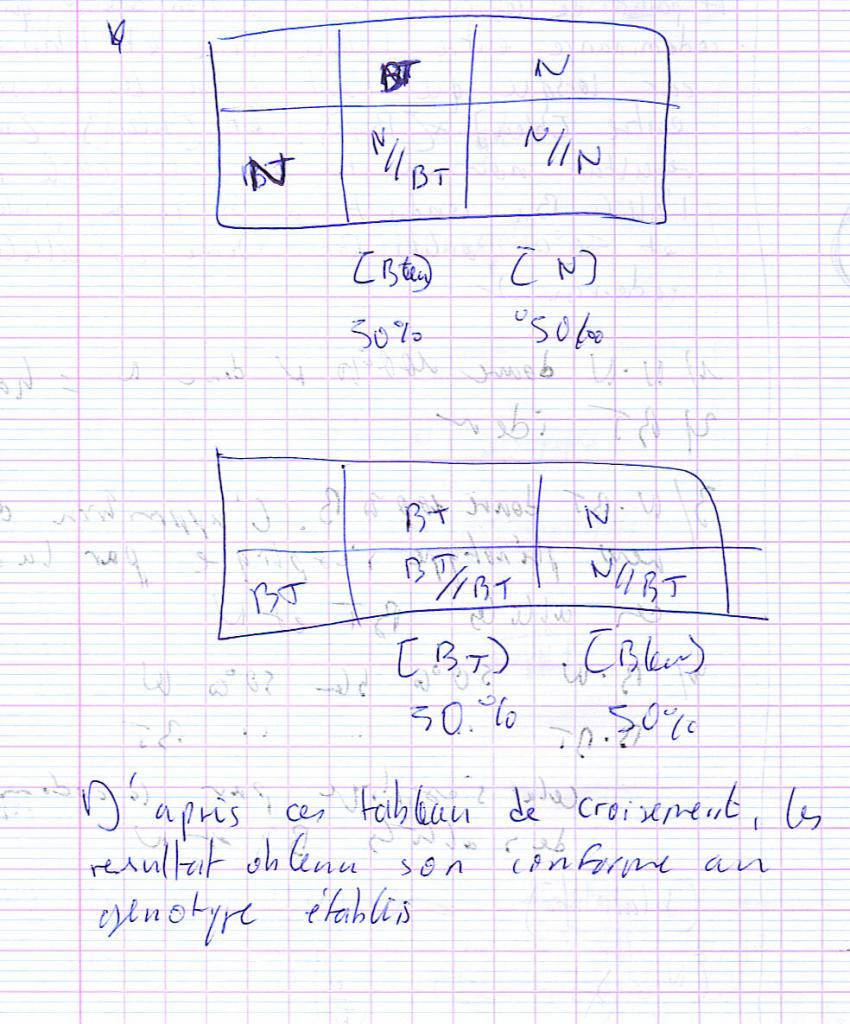 BT N
N N//BT N//N
[Bleu] [N]
50% 50%
BT N
BT BT//BT N//BT
[BT] [Bleu]
50.% 50%
D'après ces tableau de croisement, les
resultat obtenu son conforme au
génotype établis